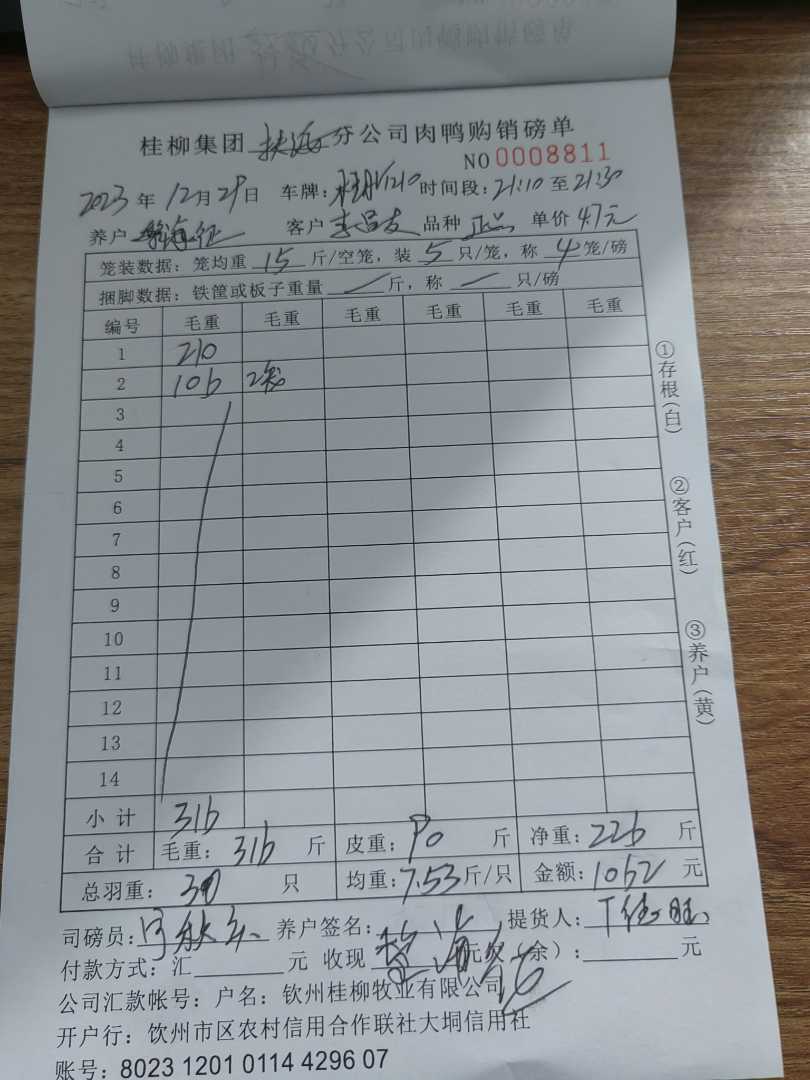 桂柳集团 分公司肉鸭购销磅单
NO 0008811
2023年12月29日 车牌: 1210 时间段:21:10至21:30
养户 海 客户 李昌友 品种 正品 单价 4.7元
笼装数据:笼均重 15 斤/空笼,装 5 只/笼,称 4 笼/磅
捆脚数据:铁筐或板子重量 / 斤,称 / 只/磅
编号 毛重 毛重 毛重 毛重 毛重 毛重
1 210
2 106 2笼
3
4
5
6
7
8
9
10
11
12
13
14
小计 316
合计 毛重:316 斤 皮重:90 斤 净重:226 斤
总羽重:30 只 均重:7.53斤/只 金额:1062 元
司磅员: 养户签名: 提货人:
付款方式:汇 元 收现 元欠(余):元
公司汇款帐号:户名:钦州桂柳牧业有限公司
开户行:钦州市区农村信用合作联社大垌信用社
账号:8023 1201 0114 4296 07
①存根(白)
②客户(红)
③养户(黄)